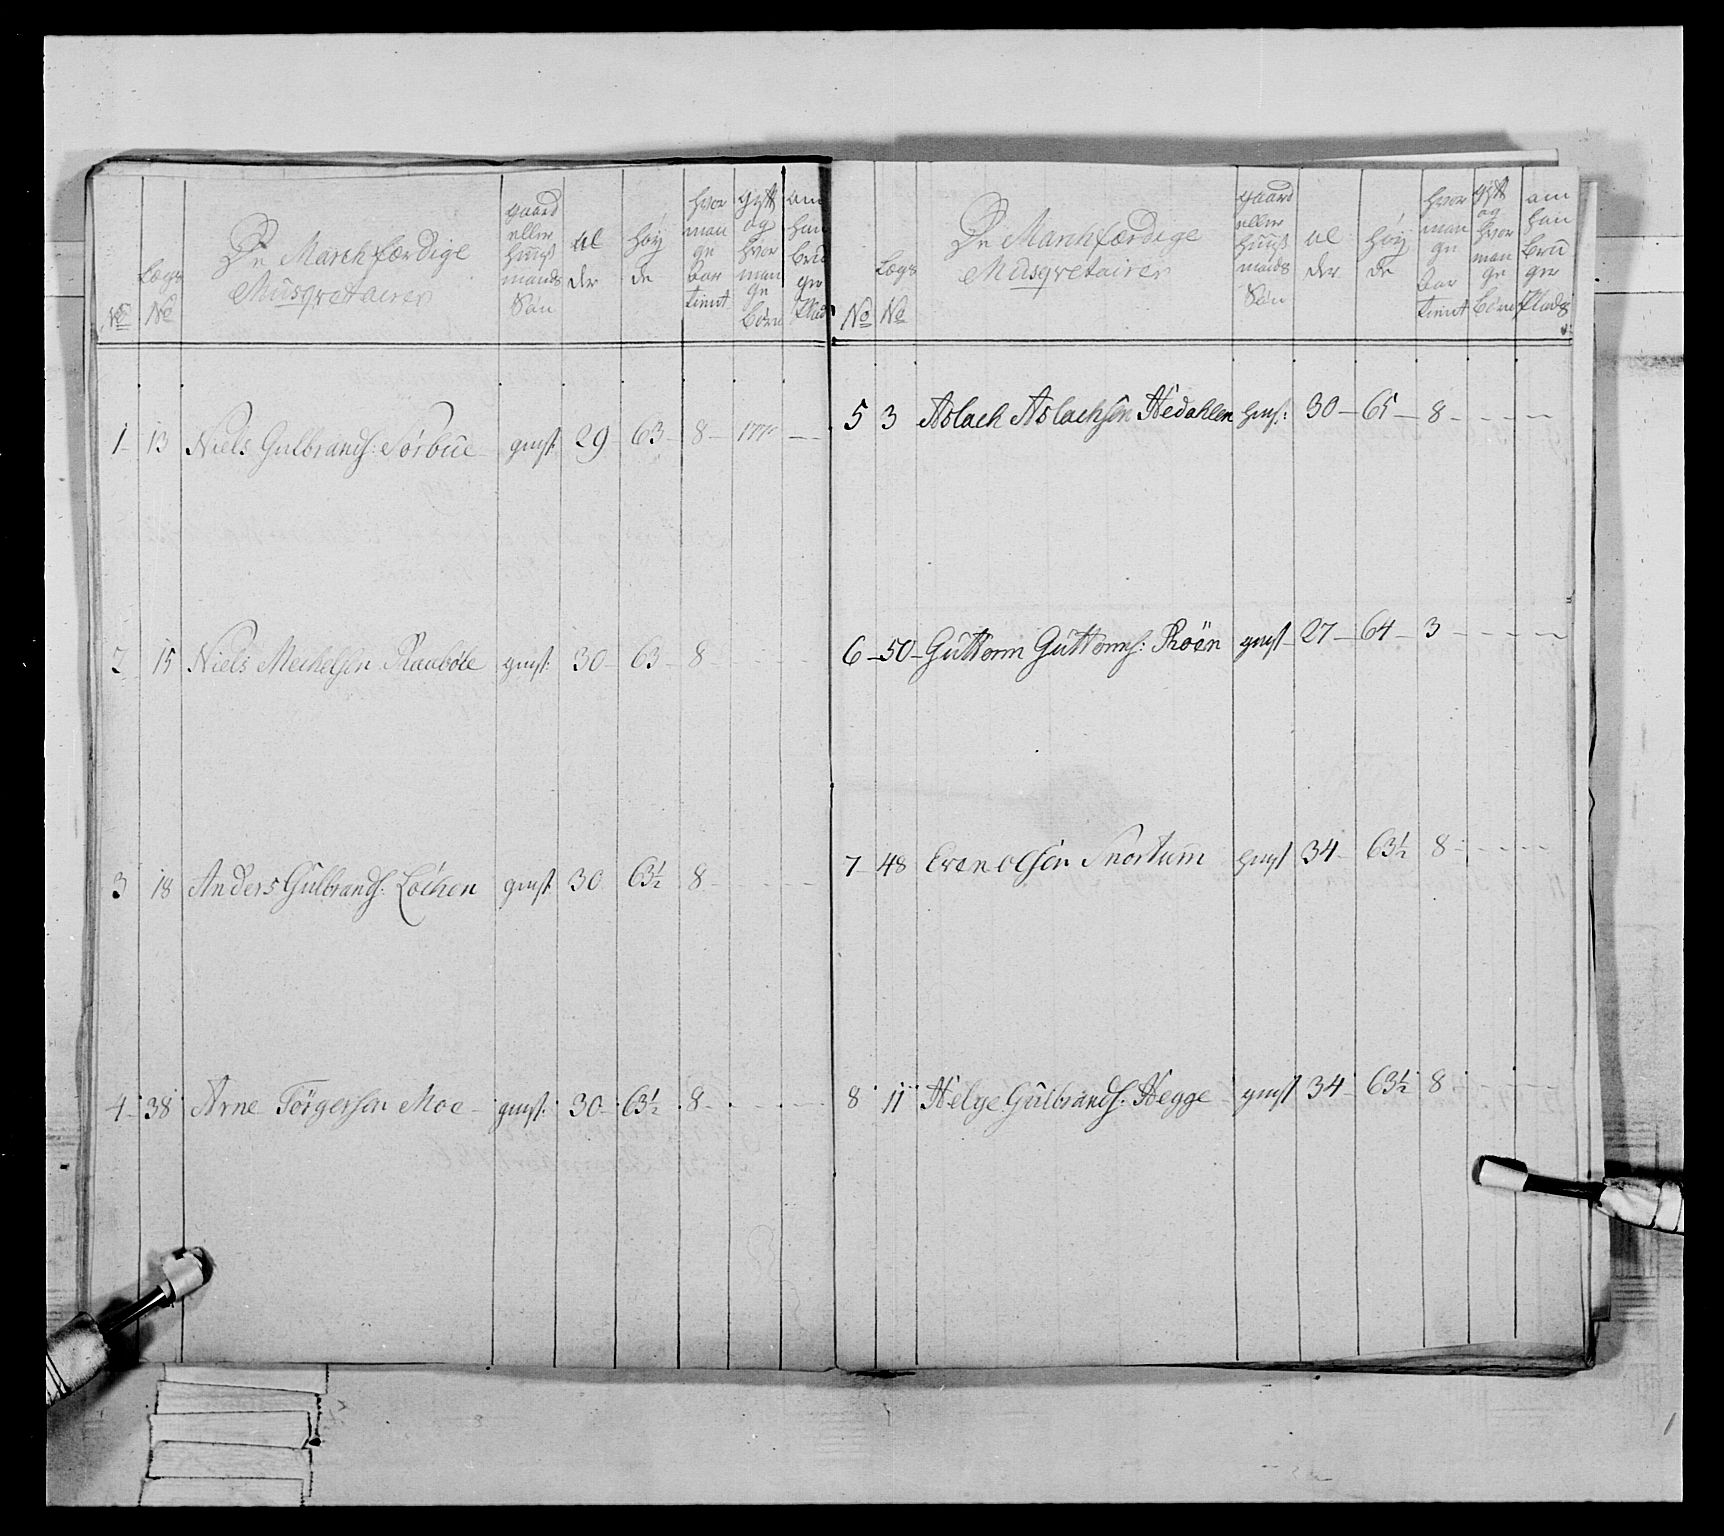 No
Lægs No
De Marchfærdige
Musqvetairer
gaard eller huuß mands Søn
Al der
høy de
hvor man ge Aar tient
gift og hvor man ge Børn
om han bru ger Plads
1 13 Niels Gulbrands: Sørbüe gmsß 29 63 8
2 15 Niels Mechelsen Raabøle gmsß: 30 63 8
3 18 Anders Gulbrands: Løchen gmsß 30 63½ 8
4 38 Arne Torgersen Moe gmsß: 30 63½ 8
No
Lægs No
De Marchfærdige
Musqvetairer
gaard eller huuß mands Søn
Al der
høy de
hvor man ge Aar tient
gift og hvor man ge Børn
om han bru ger Plads
5 3 Aslach Aslachsen Hedahlen hmsß: 30 65 8
6 50 Guttorm Guttorms: Röen gmsß 27 64 3
7 48 Even Olsen Snortum hmsß 34 63½ 8
8 11 Helge Gulbrands: Hegge gmsß 34 63½ 8